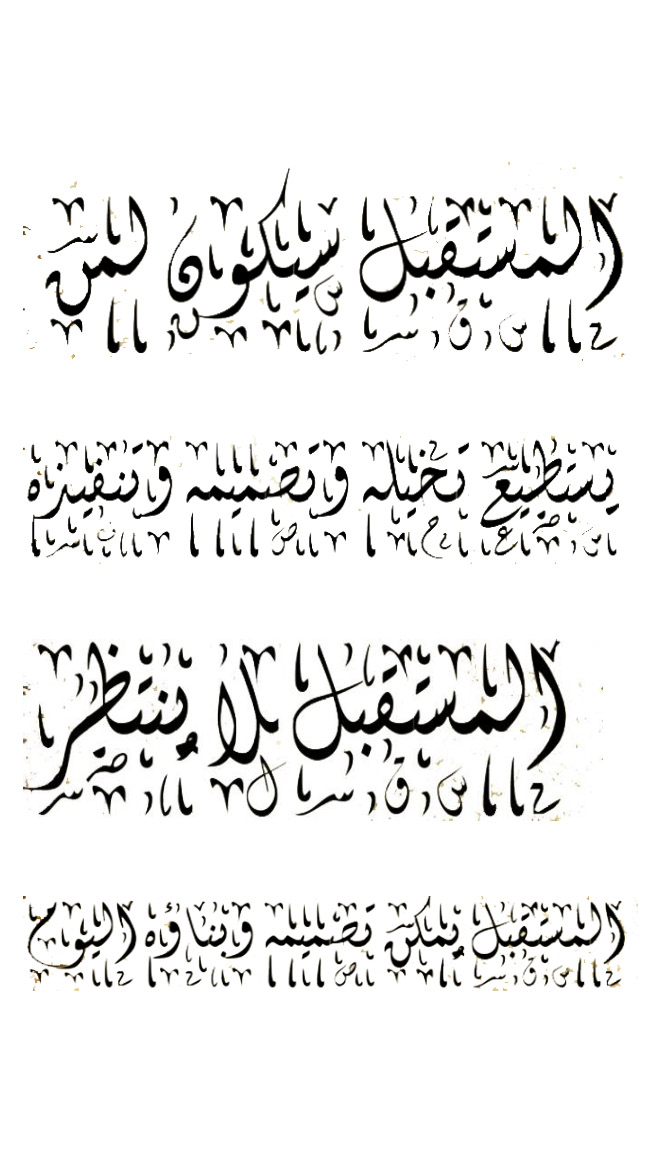 المستقبل سيكون لمن
يستطيع تخيله وتصميمه وتنفيذه
المستقبل لا يُنتظر
المستقبل يُمكن تصميمه وبناؤه اليوم